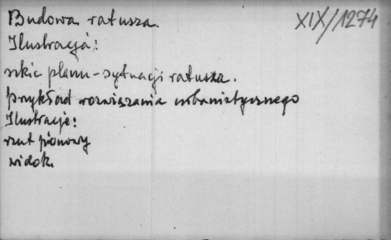 Budowa ratusza.
XIX/1274
Ilustracja:
szkic planu-sytuacji ratusza.
przykład rozwiązania urbanistycznego
Ilustracje:
rzut pionowy
widok.